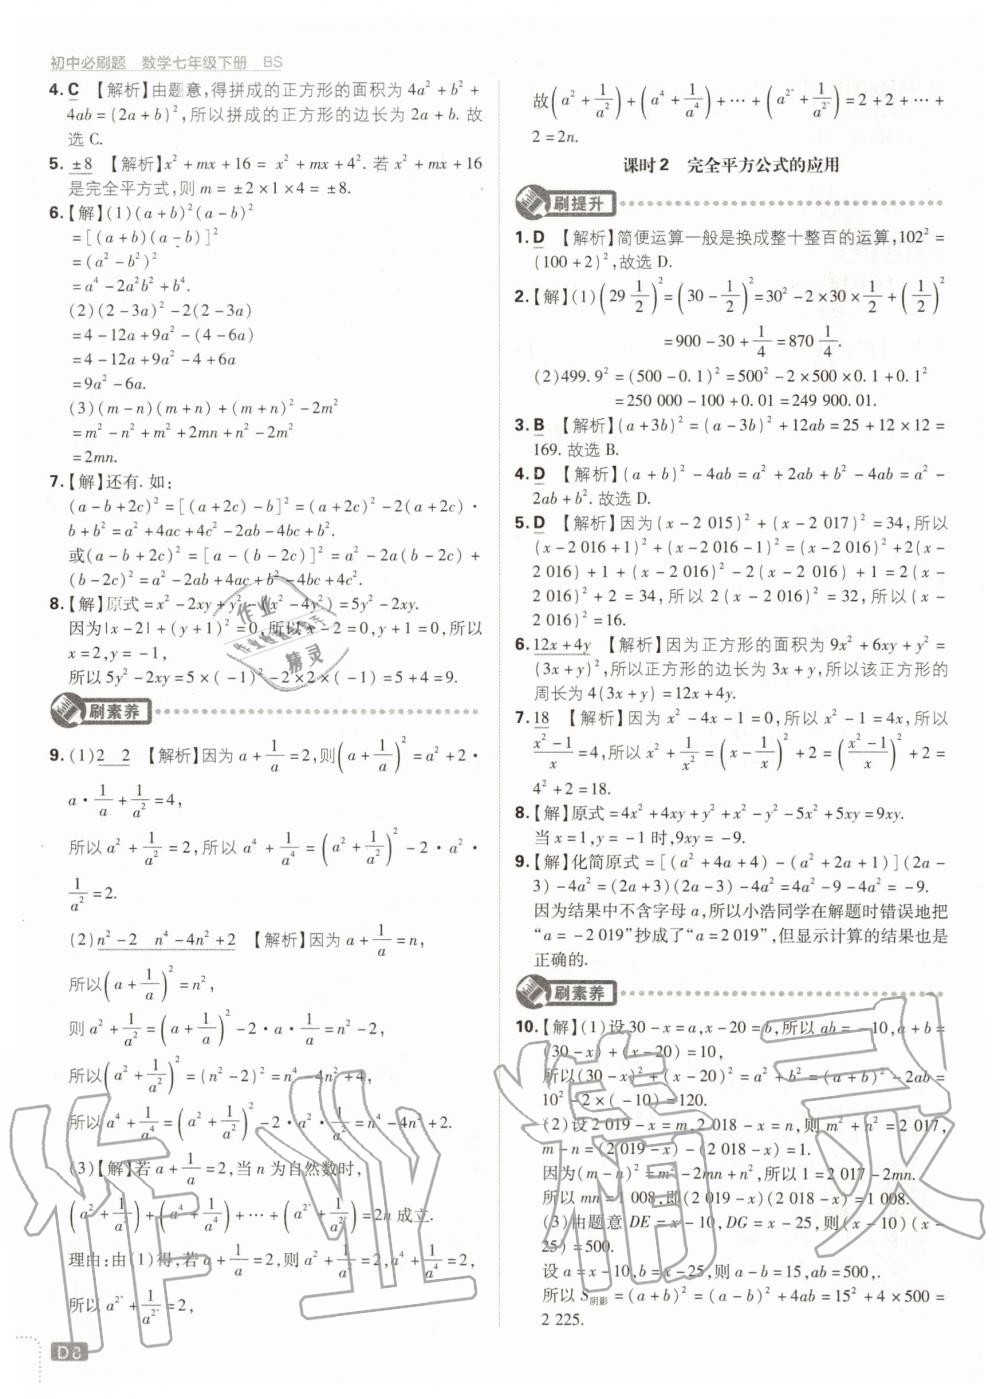 初中必刷题 数学七年级下册 BS
4. C 【解析】由题意,得拼成的正方形的面积为 4a² + b² +
4ab = (2a + b)²,所以拼成的正方形的边长为 2a + b. 故
选 C.
5. ±8 【解析】x² + mx + 16 = x² + mx + 4². 若 x² + mx + 16
是完全平方式,则 m = ±2×1×4 = ±8.
6.【解】(1)(a + b)²(a − b)²
= [(a + b)(a − b)]²
= (a² − b²)²
= a⁴ − 2a²b² + b⁴.
(2)(2 − 3a)² − 2(2 − 3a)
= 4 − 12a + 9a² − (4 − 6a)
= 4 − 12a + 9a² − 4 + 6a
= 9a² − 6a.
(3)(m − n)(m + n) + (m + n)² − 2m²
= m² − n² + m² + 2mn + n² − 2m²
= 2mn.
7.【解】还有. 如:
(a − b + 2c)² = [(a + 2c) − b]² = (a + 2c)² − 2(a + 2c)·
b + b² = a² + 4ac + 4c² − 2ab − 4bc + b².
或(a − b + 2c)² = [a − (b − 2c)]² = a² − 2a(b − 2c) +
(b − 2c)² = a² − 2ab + 4ac + b² − 4bc + 4c².
8.【解】原式 = x² − 2xy + y² − (x² − 4y²) = 5y² − 2xy.
因为|x − 2| + (y + 1)² = 0,所以 x − 2 = 0,y + 1 = 0,所以
x = 2,y = −1,
所以 5y² − 2xy = 5×(−1)² − 2×2×(−1) = 5 + 4 = 9.
刷素养
9. (1)2 2 【解析】因为 a + 1/a = 2,则(a + 1/a)² = a² + 2·
a·1/a + 1/a² = 4,
所以 a² + 1/a² = 2,所以 a⁴ + 1/a⁴ = (a² + 1/a²)² − 2·a²·
1/a² = 2.
(2)n² − 2 n⁴ − 4n² + 2 【解析】因为 a + 1/a = n,
所以(a + 1/a)² = n²,
则 a² + 1/a² = (a + 1/a)² − 2·a·1/a = n² − 2,
所以(a² + 1/a²)² = (n² − 2)² = n⁴ − 4n² + 4,
所以 a⁴ + 1/a⁴ = (a² + 1/a²)² − 2·a²·1/a² = n⁴ − 4n² + 2.
(3)【解】若 a + 1/a = 2,当 n 为自然数时,
(a² + 1/a²) + (a⁴ + 1/a⁴) + ⋯ + (a^2ⁿ + 1/a^2ⁿ) = 2n 成立.
理由:由(1)得,若 a + 1/a = 2,则 a² + 1/a² = 2,a⁴ + 1/a⁴ = 2,
所以 a^2ⁿ + 1/a^2ⁿ = 2,
故(a² + 1/a²) + (a⁴ + 1/a⁴) + ⋯ + (a^2ⁿ + 1/a^2ⁿ) = 2 + 2 + ⋯ +
2 = 2n.
课时2 完全平方公式的应用
刷提升
1. D 【解析】简便运算一般是换成整十整百的运算,102² =
(100 + 2)²,故选 D.
2.【解】(1)(29 1/2)² = (30 − 1/2)² = 30² − 2×30×1/2 + (1/2)²
= 900 − 30 + 1/4 = 870 1/4.
(2)499.9² = (500 − 0.1)² = 500² − 2×500×0.1 + 0.1²
= 250 000 − 100 + 0.01 = 249 900.01.
3. B 【解析】(a + 3b)² = (a − 3b)² + 12ab = 25 + 12×12 =
169. 故选 B.
4. D 【解析】(a + b)² − 4ab = a² + 2ab + b² − 4ab = a² −
2ab + b². 故选 D.
5. D 【解析】因为(x − 2 015)² + (x − 2 017)² = 34,所以
(x − 2 016 + 1)² + (x − 2 016 − 1)² = (x − 2 016)² + 2(x −
2 016) + 1 + (x − 2 016)² − 2(x − 2 016) + 1 = 2(x −
2 016)² + 2 = 34,所以 2(x − 2 016)² = 32,所以(x −
2 016)² = 16.
6. 12x + 4y 【解析】因为正方形的面积为 9x² + 6xy + y² =
(3x + y)²,所以正方形的边长为 3x + y,所以该正方形的
周长为 4(3x + y) = 12x + 4y.
7. 18 【解析】因为 x² − 4x − 1 = 0,所以 x² − 1 = 4x,所以
(x² − 1)/x = 4,所以 x² + 1/x² = (x − 1/x)² + 2 = ((x² − 1)/x)² + 2 =
4² + 2 = 18.
8.【解】原式 = 4x² + 4xy + y² + x² − y² − 5x² + 5xy = 9xy.
当 x = 1,y = −1 时,9xy = −9.
9.【解】化简原式 = [(a² + 4a + 4) − (a² + 2a + 1)](2a −
3) − 4a² = (2a + 3)(2a − 3) − 4a² = 4a² − 9 − 4a² = −9.
因为结果中不含字母 a,所以小浩同学在解题时错误地把
“a = −2 019”抄成了“a = 2 019”,但显示计算的结果也是
正确的.
刷素养
10.【解】(1)设 30 − x = a,x − 20 = b,所以 ab = −10,a + b =
(30 − x) + (x − 20) = 10,
所以(30 − x)² + (x − 20)² = a² + b² = (a + b)² − 2ab =
10² − 2×(−10) = 120.
(2)设 2 019 − x = m,2 018 − x = n,则 m² + n² = 2 017,
m − n = (2 019 − x) − (2 018 − x) = 1.
因为(m − n)² = m² − 2mn + n²,所以 1 = 2 017 − 2mn.
所以 mn = 1 008,即(2 019 − x)(2 018 − x) = 1 008.
(3)由题意 DE = x − 10,DG = x − 25,则(x − 10)(x −
25) = 500.
设 a = x − 10,b = x − 25,则 a − b = 15,ab = 500,.
所以 S阴影 = (a + b)² = (a − b)² + 4ab = 15² + 4×500 =
2 225.
D8
作业精灵